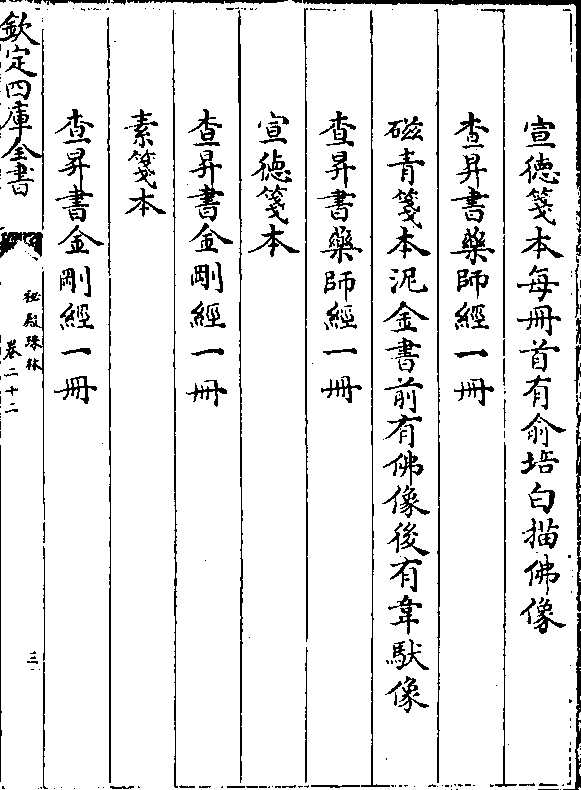 宣德箋本每冊首有俞培白描佛像
查昇書藥師經一冊
磁青箋本泥金書前有佛像後有韋馱像
查昇書藥師經一冊
宣德箋本
查昇書金剛經一冊
素箋本
查昇書金剛經一冊
欽定四庫全書
秘殿珠林
卷二十二
三